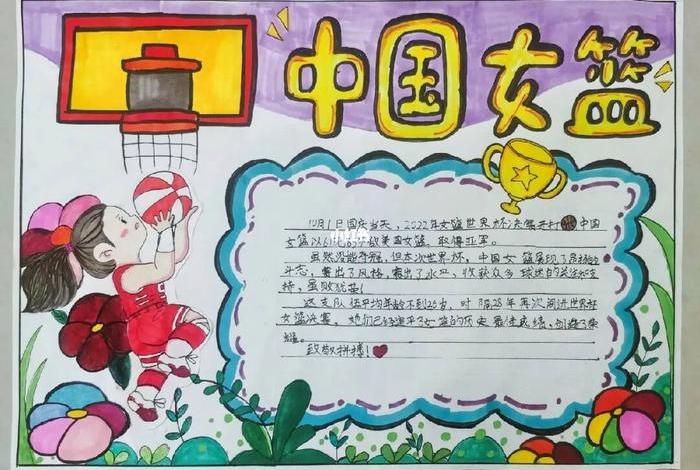 中国女篮
10月1日国庆当天，2022年女篮世界杯决赛开打中国
女篮以61败美国女篮，取得亚军。
虽然没能夺冠，但本次世界杯，中国女篮展现了
斗志，赛出了风格，赛出了水平，收获众多球迷的关注和支
持，虽败犹荣！
这支队伍平均年龄不到26岁，时隔28年再次闯进世界杯
女篮决赛，她们已经追平了女篮的历史最佳成绩，创造了
致敬拼搏！